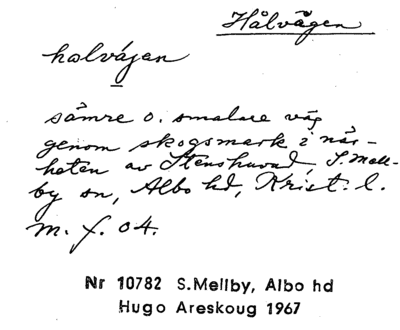 Hålvägen
halvájen
sämre o. smalare väg
genom skogsmark i när-
heten av Stenshuvud, S. Mell-
by sn, Albo hd, Krist. l.
m. f. 04.
Nr 10782 S.Mellby, Albo hd
Hugo Areskoug 1967